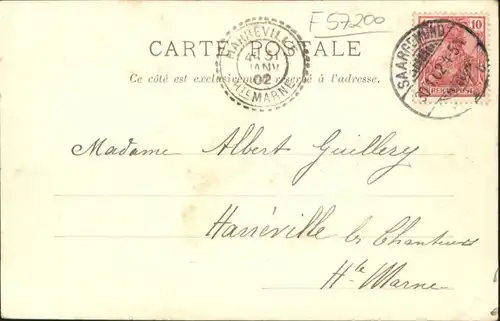 F 57200
CARTE POSTALE
Ce côté est exclusivement réservé à l'adresse.
31
JANV
02
Hte MARNE
SAARGEMÜND
10
REICHSPOST
Madame Albert Guillery
Harréville les Chanteurs
Hte Marne